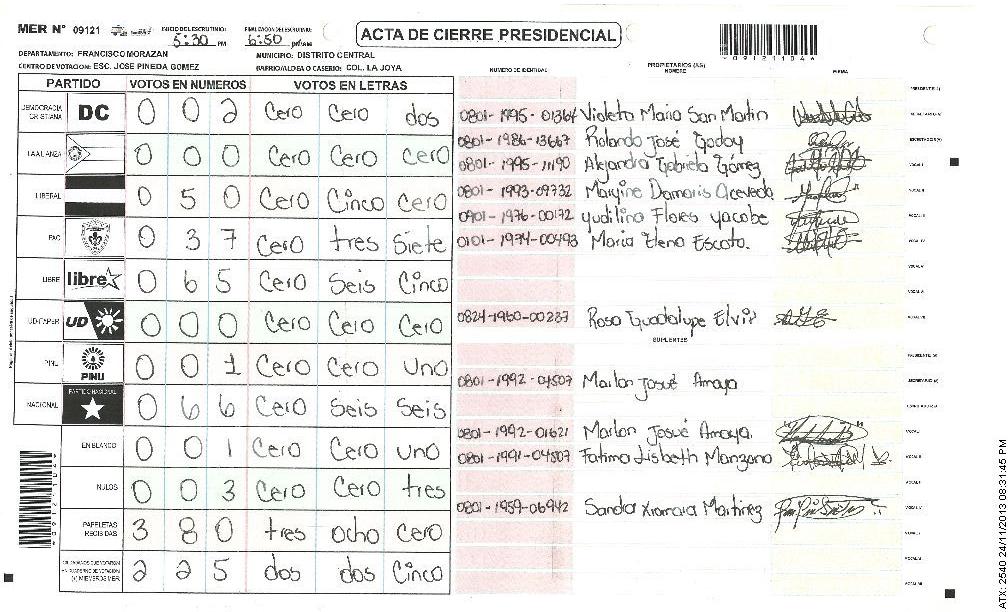 MER N° 09121 INICIO DEL ESCRUTINIO: 5:30 PM FINALIZACION DEL ESCRUTINIO: 6:50 PM ACTA DE CIERRE PRESIDENCIAL
DEPARTAMENTO: FRANCISCO MORAZAN MUNICIPIO: DISTRITO CENTRAL
CENTRO DE VOTACION: ESC. JOSE PINEDA GOMEZ BARRIO/ALDEA O CASERIO: COL. LA JOYA
PARTIDO VOTOS EN NUMEROS VOTOS EN LETRAS
DEMOCRACIA CRISTIANA DC 0 0 2 Cero Cero dos
LA ALIANZA 0 0 0 Cero Cero Cero
LIBERAL 0 5 0 Cero Cinco Cero
PAC 0 3 7 Cero tres Siete
LIBRE libre 0 6 5 Cero Seis Cinco
UD-FAPER UD 0 0 0 Cero Cero Cero
PINU PINU 0 0 1 Cero Cero uno
NACIONAL PARTIDO NACIONAL 0 6 6 Cero Seis Seis
EN BLANCO 0 0 1 Cero Cero uno
NULOS 0 0 3 Cero Cero tres
PAPELETAS RECIBIDAS 3 8 0 tres ocho Cero
CIUDADANOS QUE VOTARON EN CUADERNO DE VOTACION (+) MIEMBROS MER 2 2 5 dos dos Cinco
NUMERO DE IDENTIDAD PROPIETARIOS (AS) NOMBRE FIRMA
0801-1995-01364 Violeta Maria San Martin
0801-1986-13667 Rolando José Godoy
0801-1995-11190 Alejandra Gabriela Gómez
0801-1993-09732 Maryine Damaris Acevedo
0901-1976-00172 Yudilina Flores Yacobe
0101-1974-00493 Maria Elena Escoto.
0824-1960-00237 Rosa Guadalupe Elvir
SUPLENTES
0801-1992-04507 Marlon Josué Amaya
0801-1992-01621 Marlon Josué Amaya.
0801-1991-04507 Fatima Lisbeth Manzano
0801-1959-06942 Sandra Xiomara Martinez
ATX: 2540 24/11/2013 08:31:45 PM